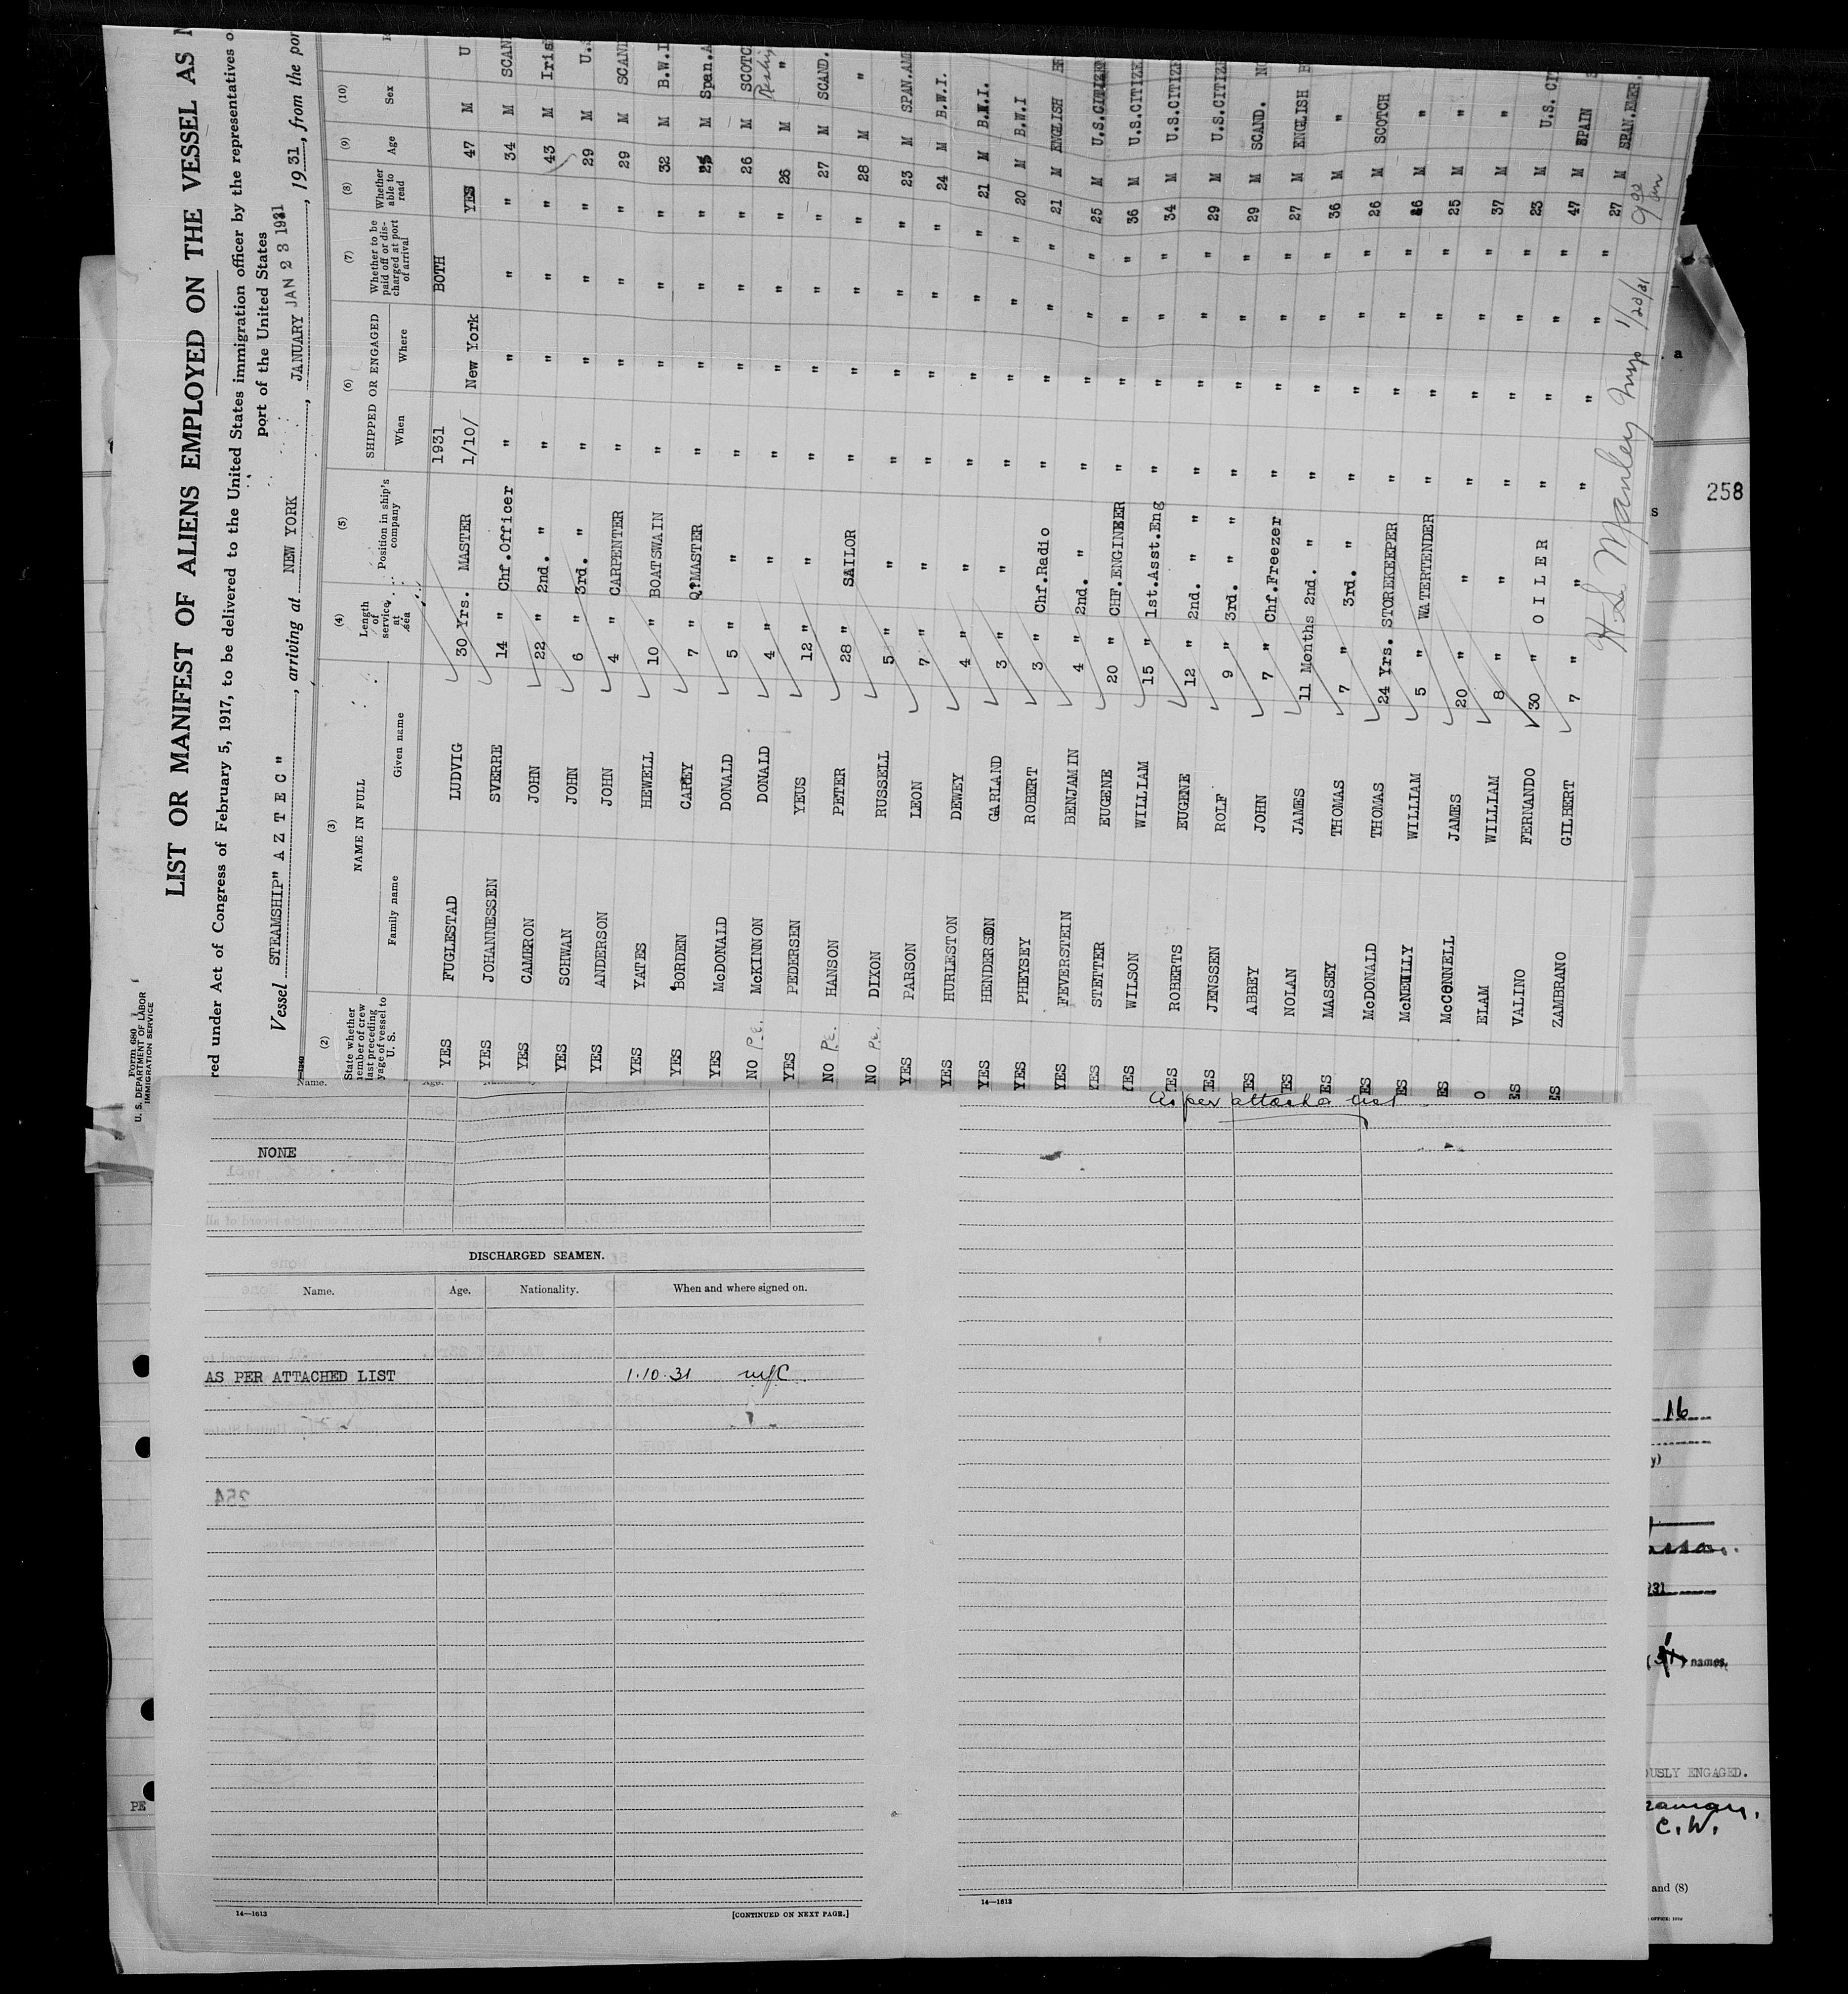 Form 680
U. S. DEPARTMENT OF LABOR
IMMIGRATION SERVICE
LIST OR MANIFEST OF ALIENS EMPLOYED ON THE VESSEL AS
red under Act of Congress of February 5, 1917, to be delivered to the United States immigration officer by the representatives o
port of the United States
Vessel STEAMSHIP" A Z T E C ", arriving at NEW YORK, JANUARY JAN 23 1931, 1931, from the por
(2) (3) (4) (5) (6) (7) (8) (9) (10)
State whether member of crew last preceding voyage of vessel to U. S.
NAME IN FULL
Family name Given name
Length of service at sea
Position in ship's company
SHIPPED OR ENGAGED
When Where
Whether to be paid off or discharged at port of arrival
Whether able to read
Age
Sex
1931 BOTH
YES FUGLESTAD LUDVIG 30 Yrs. MASTER 1/10/ New York YES 47 M U
YES JOHANNESSEN SVERRE 14 " Chf.Officer " " " " 34 M SCAN
YES CAMERON JOHN 22 " 2nd. " " " " " 43 M Iris
YES SCHWAN JOHN 6 " 3rd. " " " " " 29 M U.S
YES ANDERSON JOHN 4 " CARPENTER " " " " 29 M SCAND
YES YATES HEWELL 10 " BOATSWAIN " " " " 32 M B.W.I
YES BORDEN CAREY 7 " Q'MASTER " " " " 25 M Span.A
YES McDONALD DONALD 5 " " " " " " 26 M SCOTC
NO P.E. McKINNON DONALD 4 " " " " " " 26 M "
YES PEDERSEN YEUS 12 " " " " " " 27 M SCAND.
NO P.E. HANSON PETER 28 " SAILOR " " " " 28 M "
NO P.E. DIXON RUSSELL 5 " " " " " " 23 M SPAN.AM
YES PARSON LEON 7 " " " " " " 24 M B.W.I.
YES HURLESTON DEWEY 4 " " " " " " 21 M B.W.I.
YES HENDERSON GARLAND 3 " " " " " " 20 M B.W.I
YES PHEYSEY ROBERT 3 " Chf.Radio " " " " 21 M ENGLISH
YES FEVERSTEIN BENJAMIN 4 " 2nd. " " " " " 25 M U.S.CITIZEN
YES STETTER EUGENE 20 " CHF.ENGINEER " " " " 36 M U.S.CITIZE
YES WILSON WILLIAM 15 " 1st.Asst.Eng " " " " 34 M U.S.CITIZE
YES ROBERTS EUGENE 12 " 2nd. " " " " " " 29 M U.S.CITIZ
ES JENSSEN ROLF 9 " 3rd. " " " " " " 29 M SCAND. NO
ES ABBEY JOHN 7 " Chf.Freezer " " " " 27 M ENGLISH
ES NOLAN JAMES 11 Months 2nd. " " " " " 36 M "
ES MASSEY THOMAS 7 " 3rd. " " " " " 26 M SCOTCH
ES McDONALD THOMAS 24 Yrs. STOREKEEPER " " " " 26 M "
ES McNEILLY WILLIAM 5 " WATERTENDER " " " " 25 M "
ES McCONNELL JAMES 20 " " " " " " 37 M "
O ELAM WILLIAM 8 " " " " " " 23 M U.S. CIT
ES VALINO FERNANDO 30 " O I L E R " " " " 47 M SPAIN
ES ZAMBRANO GILBERT 7 " " " " " " 27 M SPAN.AMER.
1/23/31 9 00 am
258
Name. Age.
NONE
DISCHARGED SEAMEN.
Name. Age. Nationality. When and where signed on.
AS PER ATTACHED LIST 1.10.31
254
14—1613 [CONTINUED ON NEXT PAGE.]
As per attached list
14—1613
16
y)
names,
OUSLY ENGAGED.
C.W.
and (8)
PE